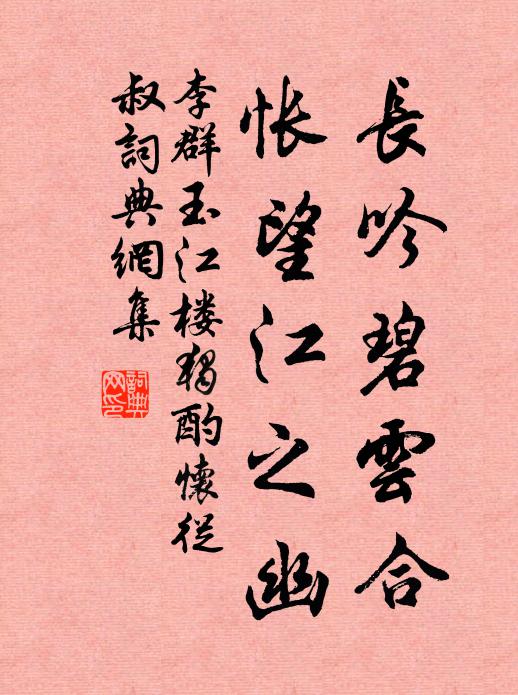 長吟碧雲合
悵望江之幽
李群玉江楼獨酌懷從
叔詞典網集
詞典网印